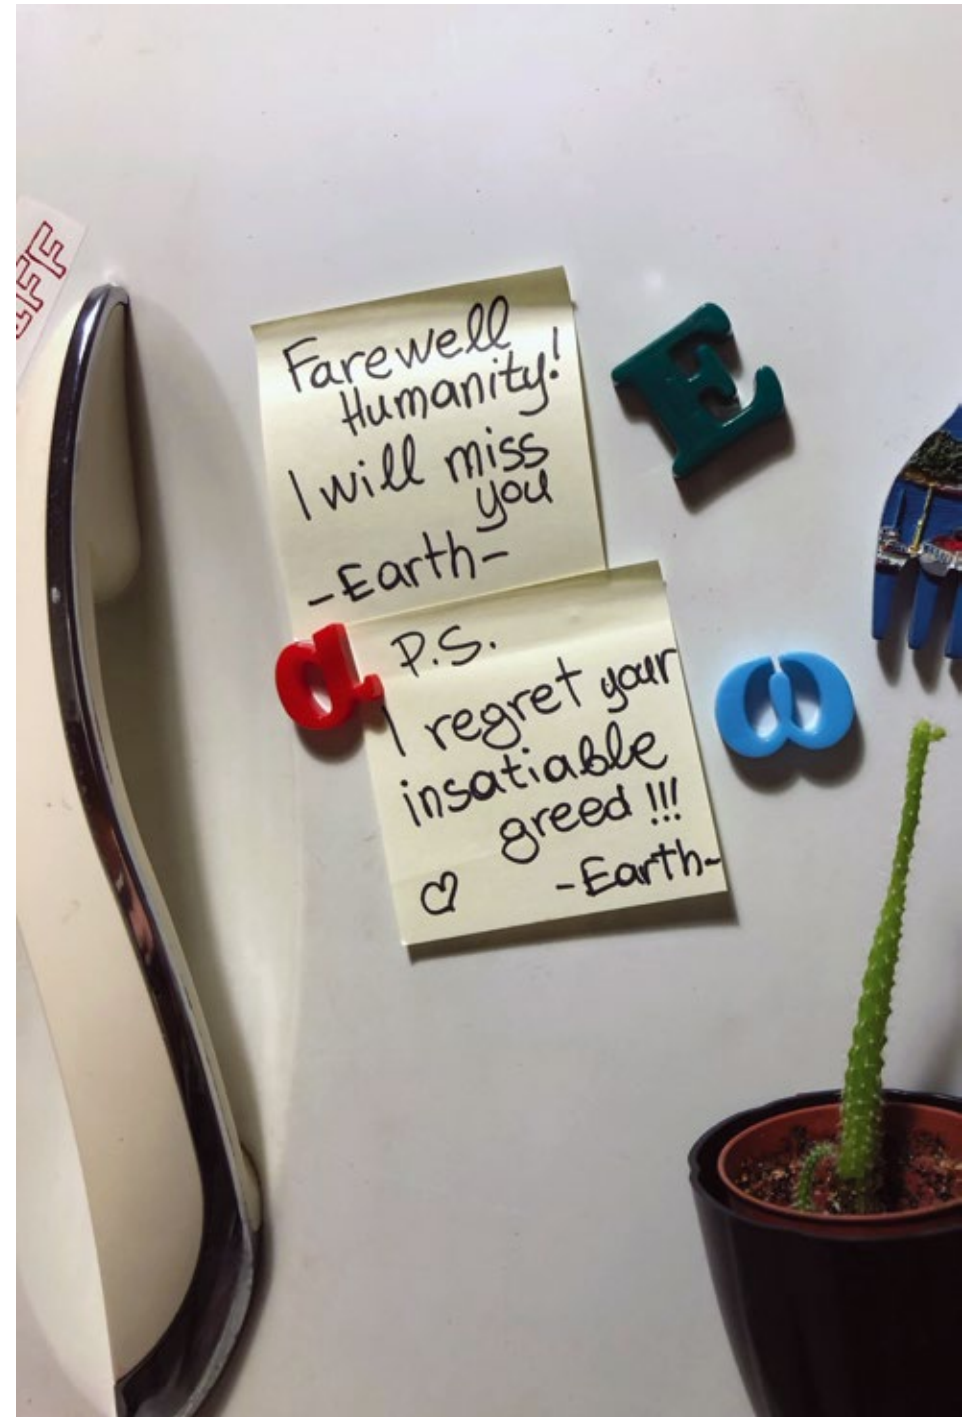 Farewell
Humanity!
I will miss
you
-Earth-
P.S.
I regret your
insatiable
greed !!!
♡ -Earth-
E
α
ω